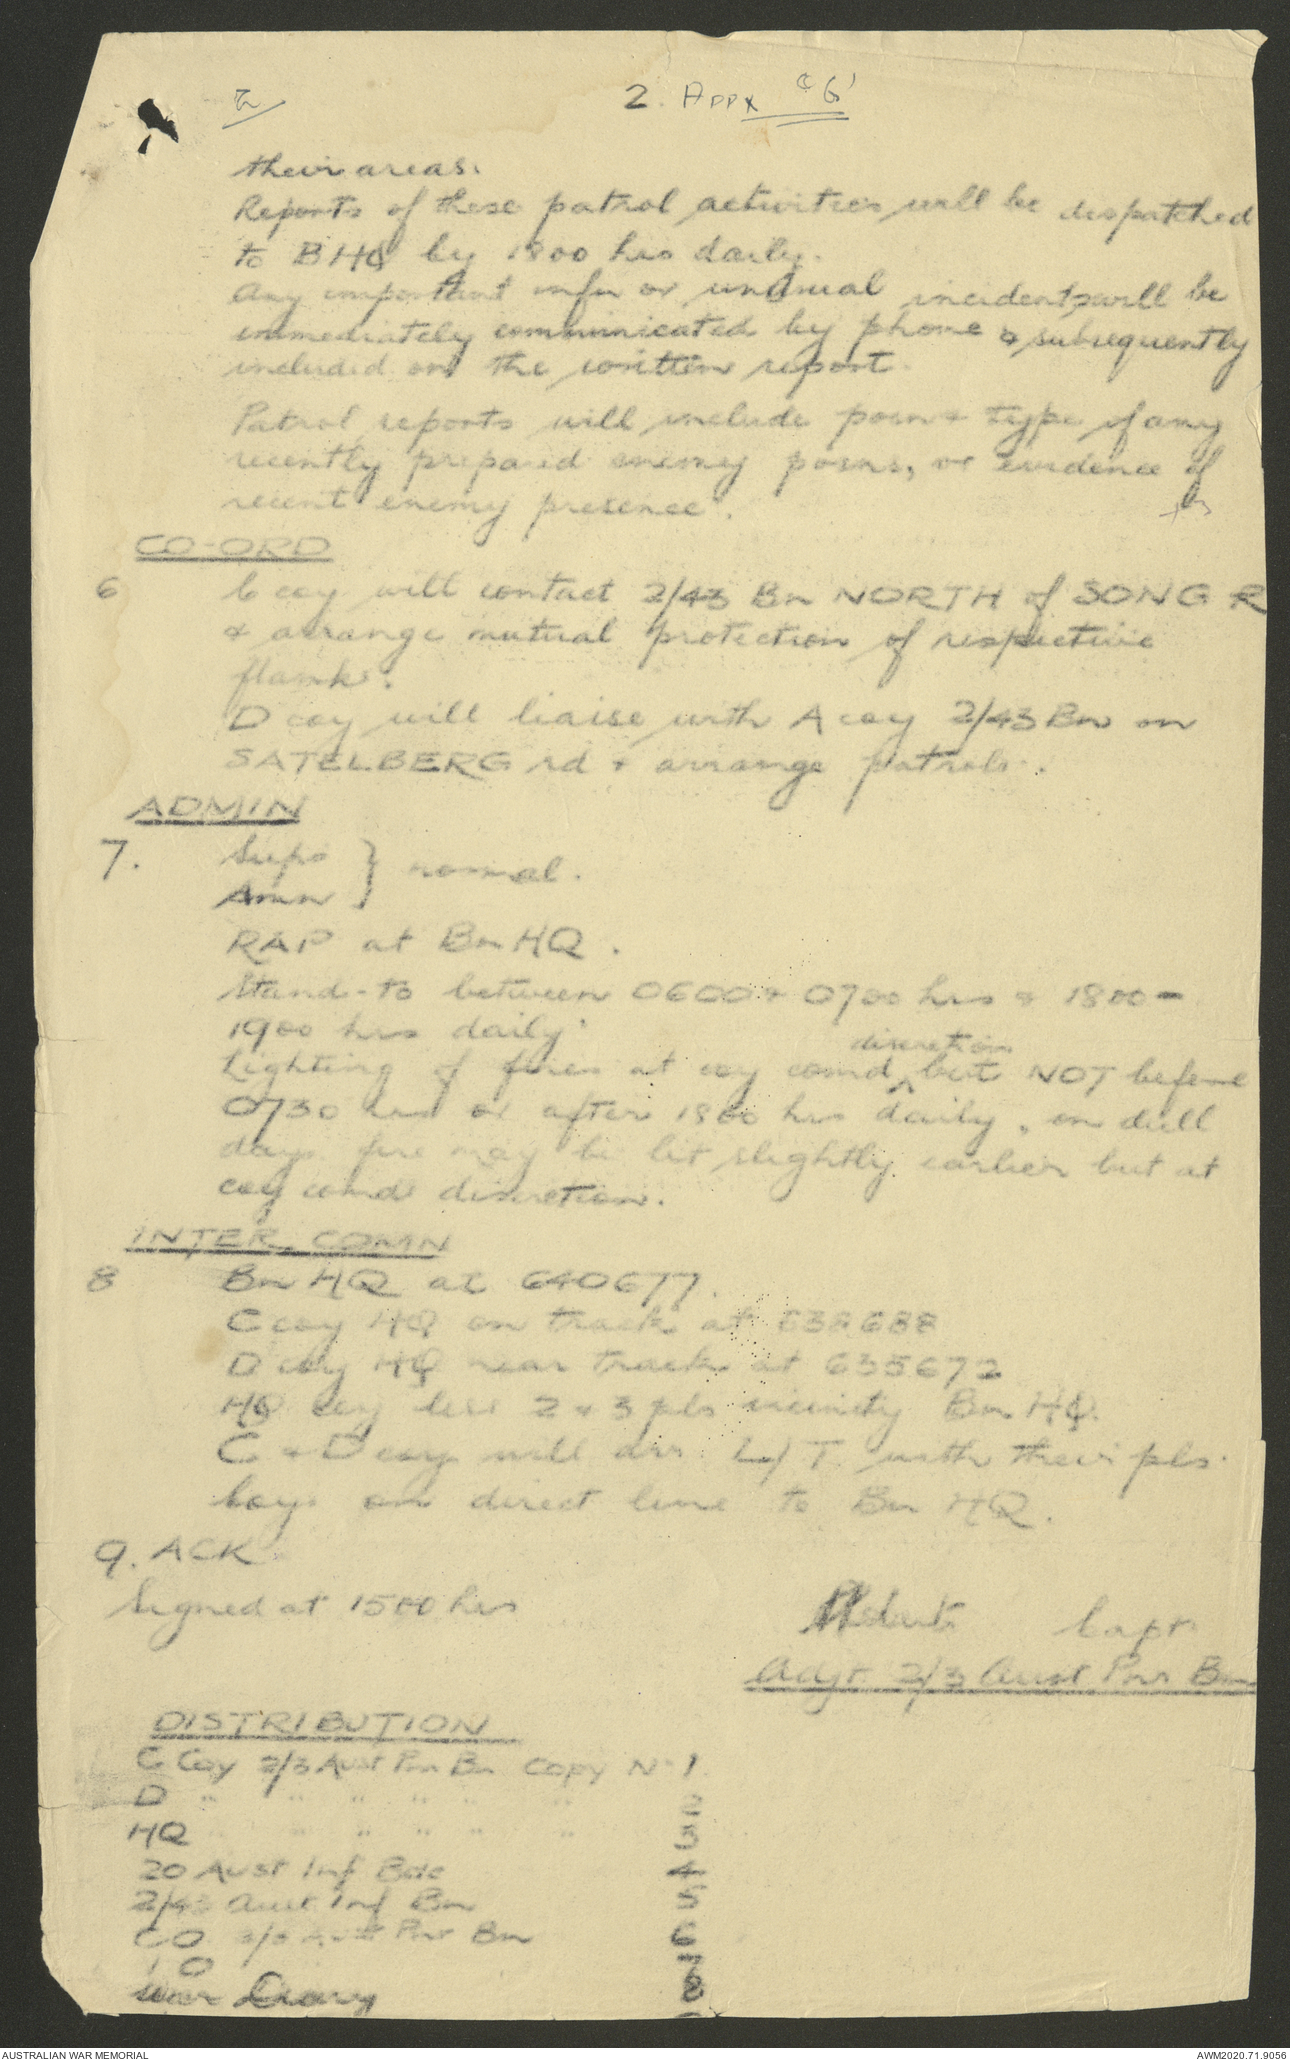 2. Appx "G"
their areas.
Reports of these patrol activities will be dispatched
to BHQ by 1800 hrs daily.
Any important infm or unusual incidents will be
immediately communicated by phone & subsequently
included on the written report.
Patrol reports will include posn & type of any
recently prepared enemy posns, or evidence of
recent enemy presence.
CO-ORD
6 C coy will contact 2/43 Bn NORTH of SONG R
& arrange mutual protection of respective
flank.
D coy will liaise with A coy 2/43 Bn on
SATELBERG rd & arrange patrols.
ADMIN
7. Sups } normal.
Amn }
RAP at Bn HQ.
Stand-to between 0600 & 0700 hrs & 1800 -
1900 hrs daily.
discretion
Lighting of fires at coy comd ^ but NOT before
0730 hrs or after 1800 hrs daily, on dull
days fire may be lit slightly earlier but at
coy comd discretion.
INTER COMN
8 Bn HQ at 640677.
C coy HQ on track at 638688
D coy HQ near track at 635672
HQ coy less 2 & 3 pls vicinity Bn HQ.
C & D coy will arr L/T with their pls.
Coys on direct line to Bn HQ.
9. ACK
Signed at 1500 hrs
Capt
Adjt 2/3 Aust Pnr Bn
DISTRIBUTION
C Coy 2/3 Aust Pnr Bn Copy No 1
D " " " " " " 2
HQ " " " " " 3
20 Aust Inf Bde 4
2/43 Aust Inf Bn 5
CO 2/3 Aust Pnr Bn 6
I O 7
War Diary 8
AUSTRALIAN WAR MEMORIAL
AWM2020.71.9056